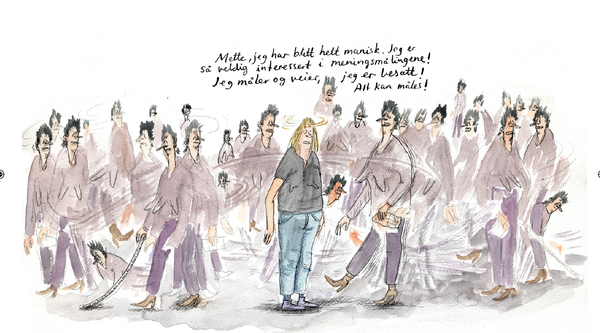 Mette, jeg har blitt helt manisk. Jeg er
så veldig interessert i meningsmålingene!
Jeg måler og veier, jeg er besatt!
Alt kan måles!